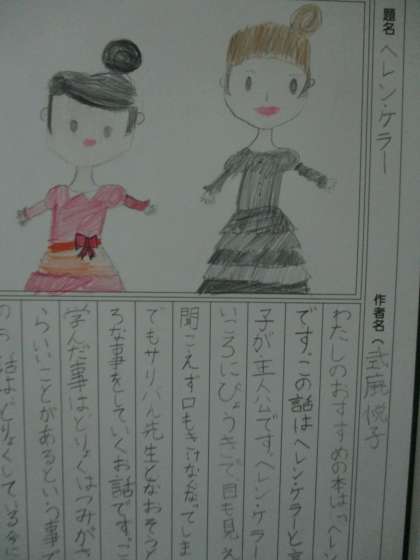 題名 ヘレン・ケラー
作者名(式風悦子
わたしのおすすめの本は「ヘレン
です。この話はヘレンケラーと言
子が主人公です。ヘレン・ケラ
いころにびょうきで、目も見え
聞こえず口もきけなくなってしま
でもサリバン先生となおそうと
ろな事をしていくお話です。こ
学んだ事はどりょくはつみがさ
らいいことがあるという事で
のう話はどりょくしている